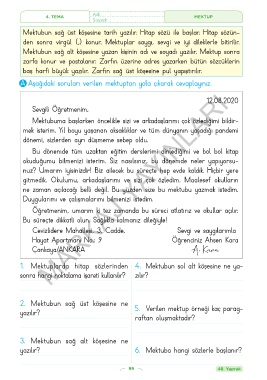 4. TEMA
MEKTUP
Mektubun sağ üst köşesine tarih yazılır. Hitap sözü ile başlar. Hitap sözün-
den sonra virgül (,) konur. Mektuplar saygı, sevgi ve iyi dileklerle bitirilir.
Mektubun sağ alt köşesine yazan kişinin adı ve soyadı yazılır. Mektup sonra
zarfa konur ve postalanır. Zarfın üzerine adres yazarken bütün sözcüklerin
baş harfi büyük yazılır. Zarfın sağ üst köşesine pul yapıştırılır.
A Aşağıdaki soruları verilen mektuptan yola çıkarak cevaplayınız.
12.08.2020
Sevgili Öğretmenim,
Mektubuma başlarken öncelikle sizi ve arkadaşlarımı çok özlediğimi bildir-
mek isterim. Yıl boyu yaşanan aksaklıklar ve tüm dünyanın yaşadığı pandemi
dönemi, sizlerden ayrı düşmeme sebep oldu.
Bu dönemde tüm uzaktan eğitim derslerimi dinlediğimi ve bol bol kitap
okuduğumu bilmenizi isterim. Siz nasılsınız, bu dönemde neler yapıyorsu-
nuz? Umarım iyisinizdir! Biz ailecek bu süreçte hep evde kaldık. Hiçbir yere
gitmedik. Okulumu, arkadaşlarımı ve sizi çok özledim. Maalesef okulların
ne zaman açılacağı belli değil. Bu yüzden size bu mektubu yazmak istedim.
Duygularımı ve çalışmalarımı bilmenizi istedim.
Öğretmenim, umarım ki tez zamanda bu süreci atlatırız ve okullar açılır.
Bu süreçte dikkatli olun. Sağlıkla kalmanız dileğiyle!
Cevizlidere Mahallesi, 3. Cadde, Sevgi ve saygılarımla
Hayat Apartmanı No: 9 Öğrenciniz Ahsen Kara
Çankaya/ANKARA A. Kara
1. Mektuplarda hitap sözlerinden
sonra hangi noktalama işareti kullanılır?
2. Mektubun sağ üst köşesine ne
yazılır?
3. Mektubun sağ alt köşesine ne
yazılır?
4. Mektubun sol alt köşesine ne ya-
zılır?
5. Verilen mektup örneği kaç parag-
raftan oluşmaktadır?
6. Mektuba hangi sözlerle başlanır?